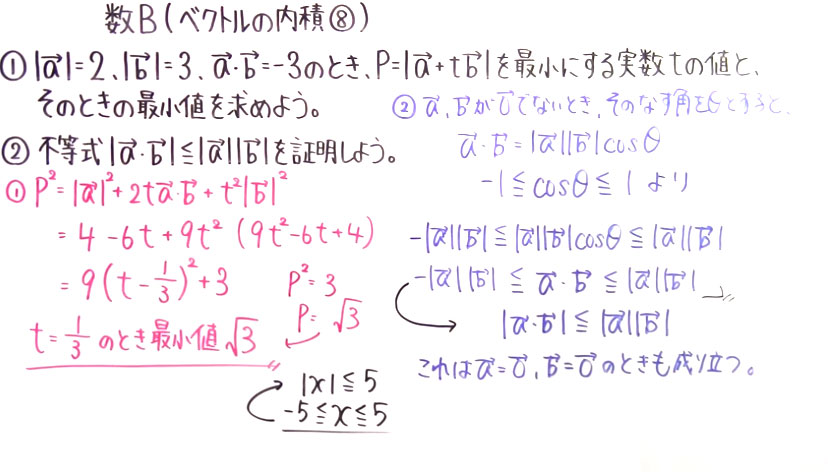 数B(ベクトルの内積⑧)
① |a⃗|=2、|b⃗|=3、a⃗・b⃗=-3のとき、P=|a⃗+tb⃗|を最小にする実数tの値と、
そのときの最小値を求めよう。
② 不等式|a⃗・b⃗|≦|a⃗||b⃗|を証明しよう。
① P²=|a⃗|²+2ta⃗・b⃗+t²|b⃗|²
=4-6t+9t² (9t²-6t+4)
=9(t-1/3)²+3
P²=3
P=√3
t=1/3のとき最小値√3
|x|≦5
-5≦x≦5
② a⃗、b⃗が0⃗でないとき、そのなす角をθとすると、
a⃗・b⃗=|a⃗||b⃗|cosθ
-1≦cosθ≦1より
-|a⃗||b⃗|≦|a⃗||b⃗|cosθ≦|a⃗||b⃗|
-|a⃗||b⃗|≦a⃗・b⃗≦|a⃗||b⃗|
|a⃗・b⃗|≦|a⃗||b⃗|
これはa⃗=0⃗、b⃗=0⃗のときも成り立つ。